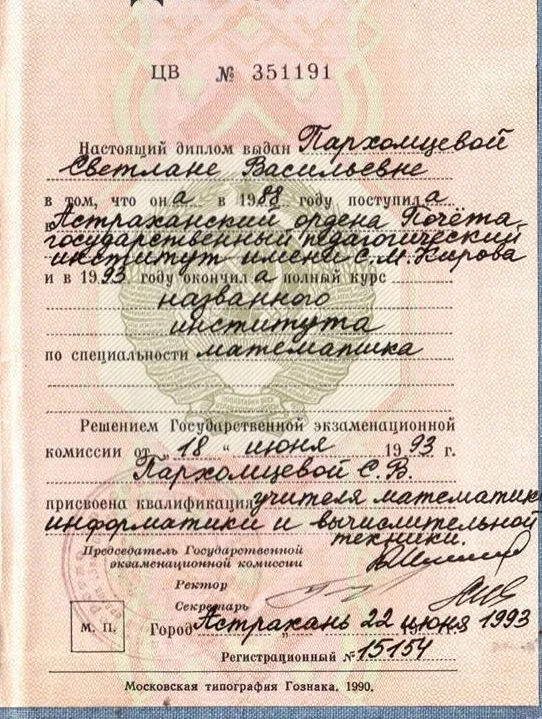 ЦВ № 351191
Настоящий диплом выдан Пархомцевой
Светлане Васильевне
в том, что она в 1988 году поступила
в Астраханский ордена Почёта
государственный педагогический
институт имени С.М. Кирова
и в 1993 году окончила полный курс
названного
института
по специальности математика
Решением Государственной экзаменационной
комиссии от „18 “ июня 1993 г.
Пархомцевой С.В.
присвоена квалификация учителя математик
информатики и вычислительной
техники.
Председатель Государственной
экзаменационной комиссии
Ректор
Секретарь
М. П.
Город Астрахань 22 июня 1993
Регистрационный № 15154
Московская типография Гознака. 1990.